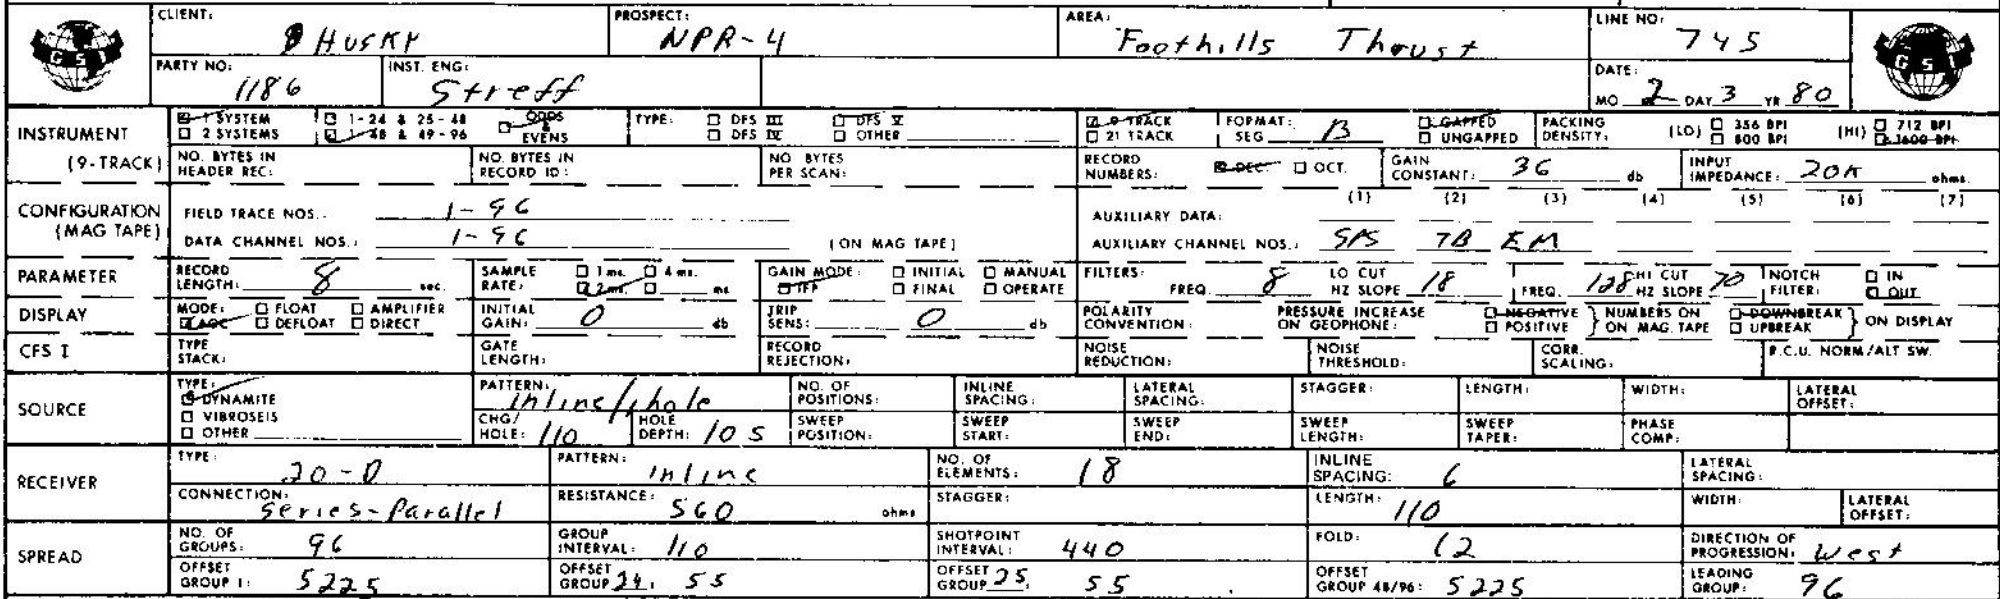 CLIENT: HUSKY PROSPECT: NPR-4 AREA: Foothills Thrust LINE NO: 745
GSI GSI
PARTY NO: 1186 INST. ENG: Streff DATE: MO 2 DAY 3 YR 80
INSTRUMENT (9-TRACK)
1 SYSTEM 1-24 & 25-48 ODDS & EVENS TYPE: DFS III DFS V 9 TRACK FORMAT: SEG B GAPPED PACKING DENSITY: (LO) 356 BPI (HI) 712 BPI
2 SYSTEMS 1-48 & 49-96 DFS IV OTHER 21 TRACK UNGAPPED 800 BPI 1600 BPI
NO. BYTES IN HEADER REC: NO. BYTES IN RECORD ID: NO. BYTES PER SCAN: RECORD NUMBERS: DEC. OCT. GAIN CONSTANT: 36 db INPUT IMPEDANCE: 20K ohms.
CONFIGURATION (MAG TAPE)
FIELD TRACE NOS.: 1-96 AUXILIARY DATA: (1) (2) (3) (4) (5) (6) (7)
DATA CHANNEL NOS.: 1-96 (ON MAG TAPE) AUXILIARY CHANNEL NOS.: TB
PARAMETER RECORD LENGTH: 8 sec. SAMPLE RATE: 1 ms. 4 ms. 2 ms. ms GAIN MODE: INITIAL MANUAL IFP FINAL OPERATE FILTERS: FREQ. 8 LO CUT HZ SLOPE 18 FREQ. 128 HI CUT HZ SLOPE 70 NOTCH FILTER: IN OUT
DISPLAY MODE: FLOAT AMPLIFIER AGC DEFLOAT DIRECT INITIAL GAIN: 0 db TRIP SENS: 0 db POLARITY CONVENTION: PRESSURE INCREASE ON GEOPHONE: NEGATIVE POSITIVE NUMBERS ON ON MAG. TAPE DOWNBREAK UPBREAK ON DISPLAY
CFS I TYPE STACK: GATE LENGTH: RECORD REJECTION: NOISE REDUCTION: NOISE THRESHOLD: CORR. SCALING: R.C.U. NORM/ALT SW.
SOURCE TYPE: DYNAMITE VIBROSEIS OTHER PATTERN: Inline/1hole NO. OF POSITIONS: INLINE SPACING: LATERAL SPACING: STAGGER: LENGTH: WIDTH: LATERAL OFFSET:
CHG/HOLE: 110 HOLE DEPTH: 105 SWEEP POSITION: SWEEP START: SWEEP END: SWEEP LENGTH: SWEEP TAPER: PHASE COMP:
RECEIVER TYPE: 20-D PATTERN: Inline NO. OF ELEMENTS: 18 INLINE SPACING: 6 LATERAL SPACING:
CONNECTION: Series-Parallel RESISTANCE: 560 ohms STAGGER: LENGTH: 110 WIDTH: LATERAL OFFSET:
SPREAD NO. OF GROUPS: 96 GROUP INTERVAL: 110 SHOTPOINT INTERVAL: 440 FOLD: 12 DIRECTION OF PROGRESSION: West
OFFSET GROUP 1: 5225 OFFSET GROUP 24: 55 OFFSET GROUP 25: 55 OFFSET GROUP 48/96: 5225 LEADING GROUP: 96